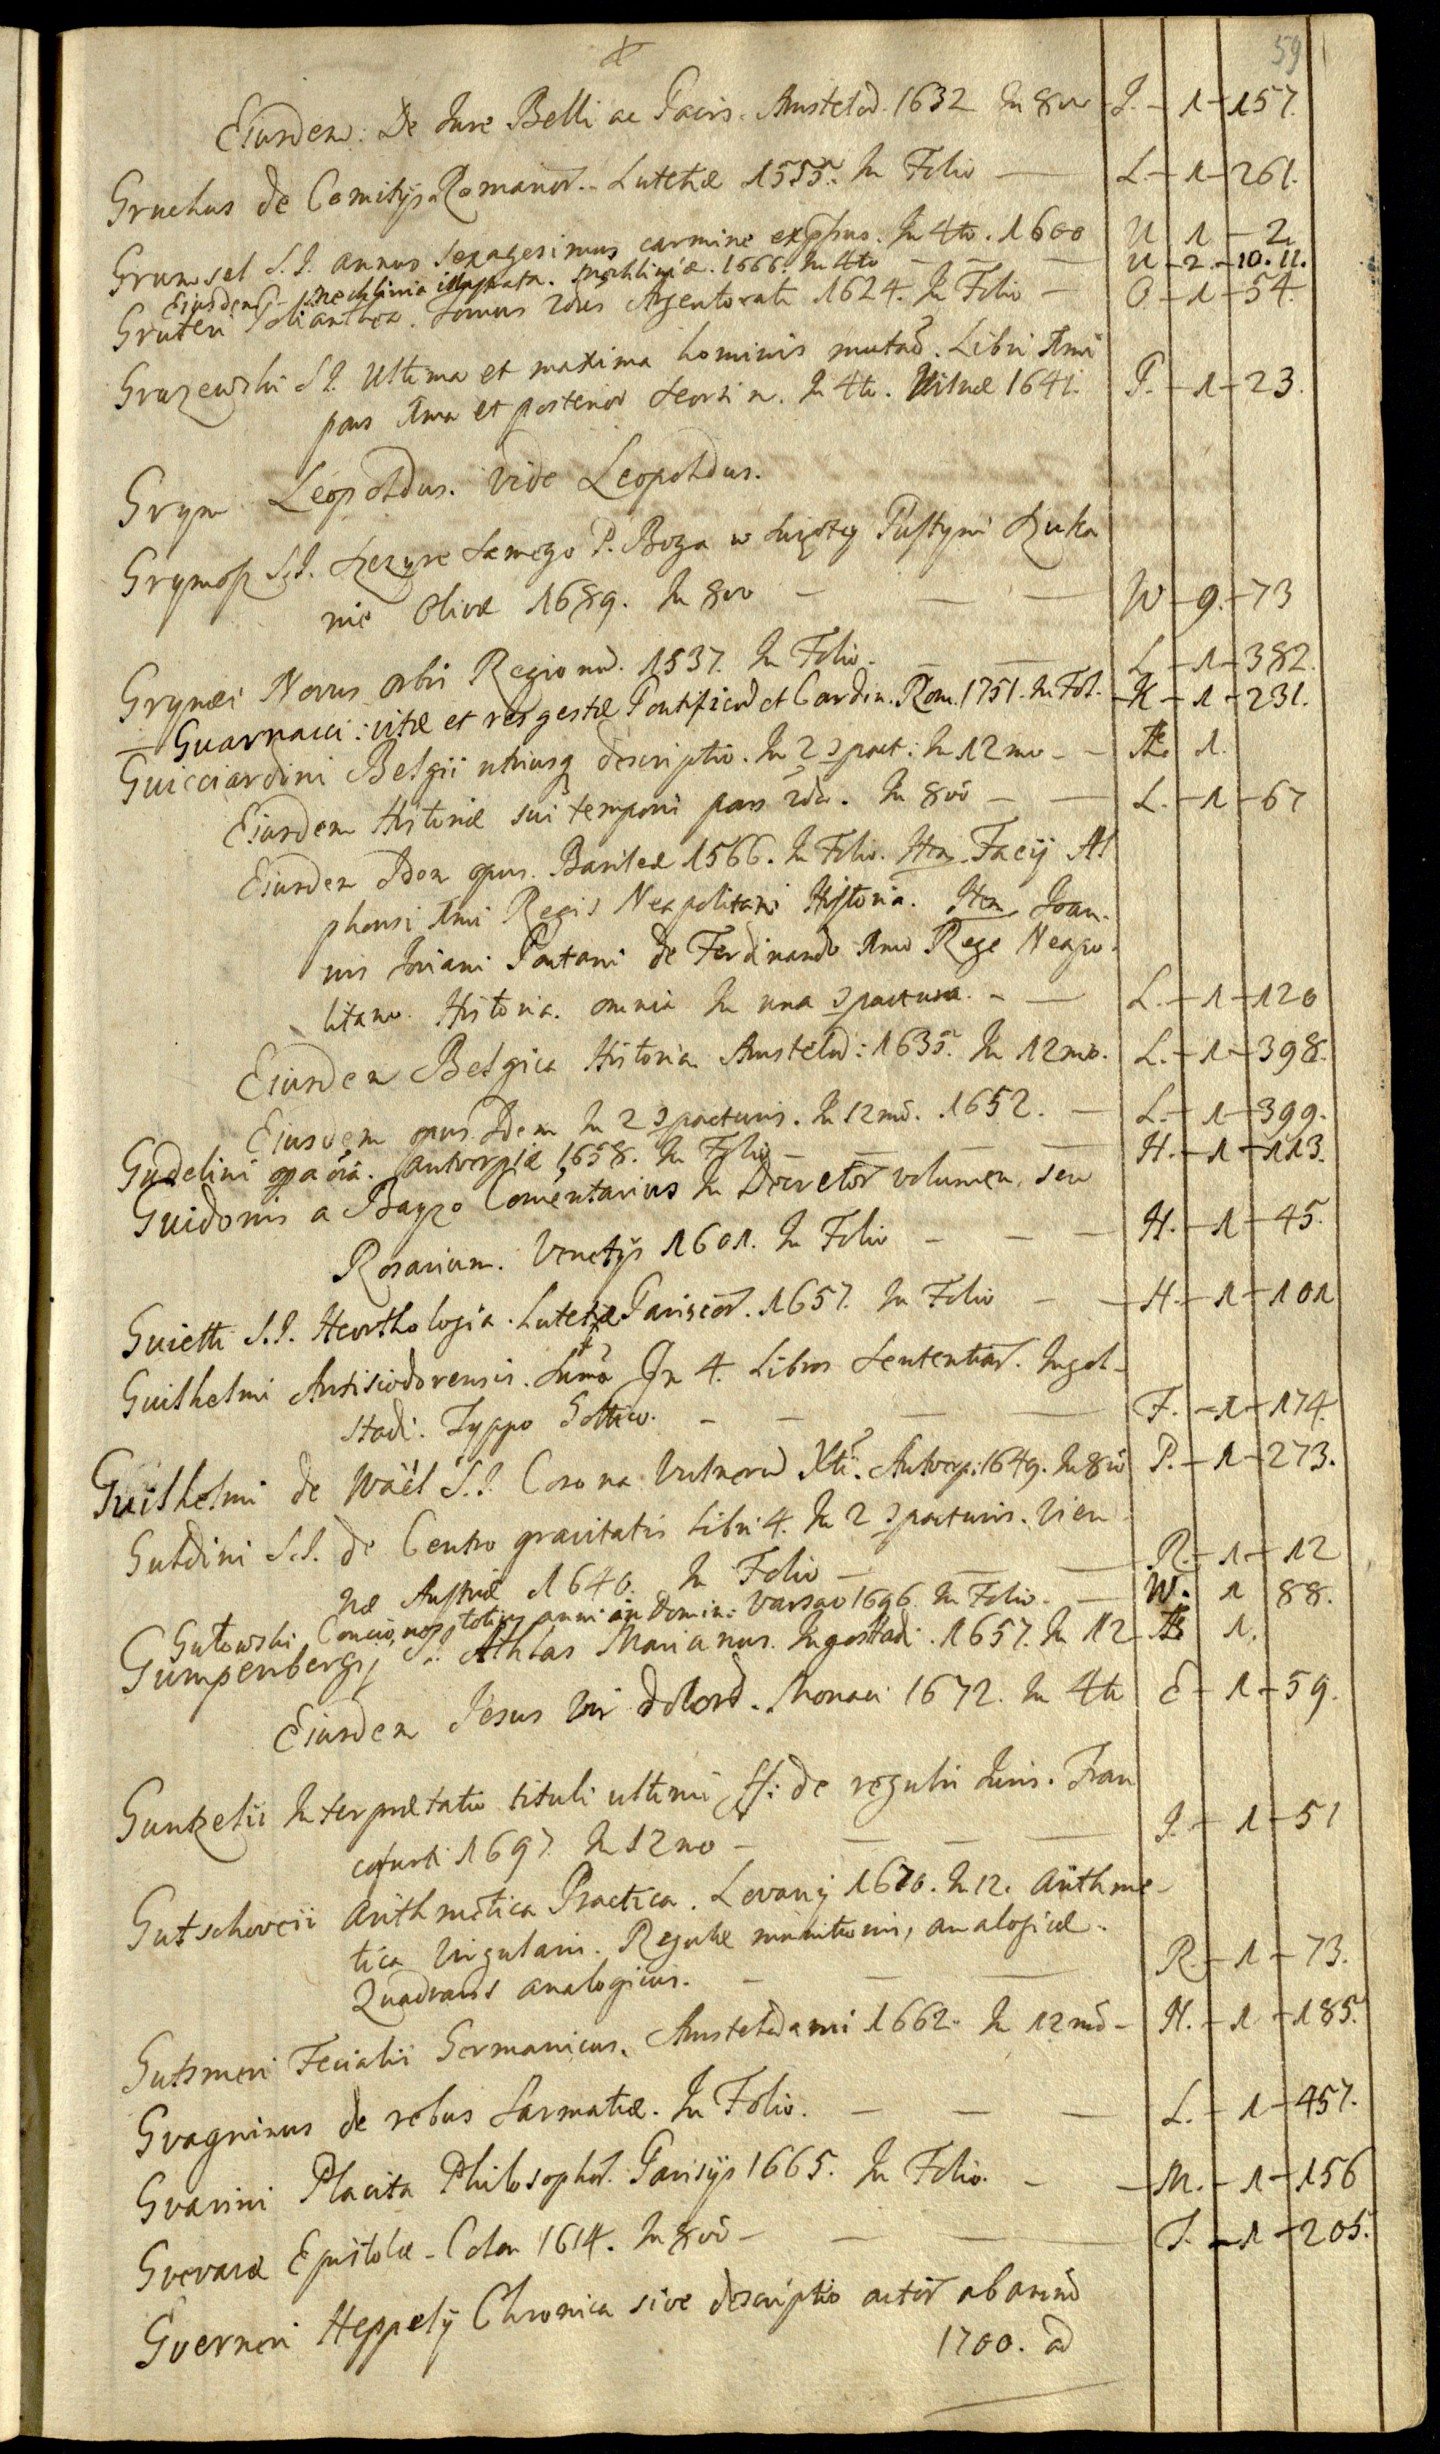 59
Eiusdem. De Jure Belli ac Pacis. Amstelod. 1632 In 8vo J. - 1 - 157.
Gruchus de Comitijs Romanor. Lutetiæ 1555. In Folio L. - 1 - 261.
Grumsel S.J. annus sexagesimus carmine expssus. In 4to. 1600 U 1 - 2
Eiusdem - Mechlinia illustrata. Mechliniæ. 1666. In 4to U - 2. - 10. 11.
Gruteri Polianthea. Tomus 2dus Argentorati 1624. In Folio O - 1 - 54.
Gruzewski S.J. Ultima et maxima hominis mutaõ. Libri 1mi
pars 1ma et posterior seorsim. In 4to. Vilnæ 1641. P. - 1 - 23.
Grym Leopoldus. Vide Leopoldus.
Grymosz S.J. Szczyre samego P. Boga w swiętey Pustyni szuka
nie Olivæ 1689. In 8vo W - 9. - 73
Grynæi Novus orbis Regionũ. 1537. In Folio. L - 1 - 382.
Guarnacci: vitæ et res gestæ Pontificũ et Cardin. Rom. 1751. In Fol. K - 1 - 231.
Guicciardini Belgii utriusq descriptio. In 2 Ɔpact: In 12mo 1.
Eiusdem Historiæ sui temporis pars 2da. In 8vo L. - 1 - 67
Eiusdem Idem opus. Basileæ 1566. In Folio. Item Facij Al
phonsi 1mi Regis Neapolitani Historia. Item Joan.
nis Joviani Pontani de Ferdinando 1mo Rege Neapo-
litano Historia. omnia In una Ɔpactura. L. - 1 - 120
Eiusdem Belgica Historia Amstelod: 1635. In 12mo. L. - 1 - 398.
Eiusdem opus Idem In 2 Ɔpacturis. In 12mo. 1652. L. - 1 - 399.
Gudelini opa oia. Antverpiæ 1658. In Folio H. - 1 - 113.
Guidonis a Bayzo Comẽntarius In Decretor volumen, seu
Rosarium. Venetijs 1601. In Folio H. - 1 - 45.
Guietti S.J. Heorthologia. Lutetiæ Parisior. 1657. In Folio H. - 1 - 101
Guilhelmi Antisiodorensis. Suma In 4. Libros Sententiar. Ingol-
stadi. Typpo Gottico. F. - 1 - 174.
Guilhelmi de Waël S.J. Corona Vulnerũ Xti. Antverp: 1649. In 8vo P. - 1 - 273.
Guldini S.J. de Centro gravitatis Libri 4. In 2 Ɔpacturis. Vien
næ Austriæ 1640. In Folio R. - 1 - 12
Gutowski Conciones totius anni in Domin: Varsav 1696. In Folio. W. 1 88.
Gumpenbergi S.J. Athlas Marianus. Ingolstadi. 1657. In 12 1.
Eiusdem Jesus Vir dolorũ. Monaci 1672. In 4to E - 1 - 59.
Guntzelii Interprætatio tituli ultimi ff: de regulis Juris. Fran
cofurti 1697. In 12mo J. - 1 - 51
Gutschovii Arithmetica Practica. Lovanij 1670. In 12. Arithme-
tica Singularis. Regulæ munitionis, analogicæ.
Quadrans analogicus. R. - 1 - 73.
Gutsmeri Fecialis Germanicus. Amstelodami 1662. In 12mo H. - 1 - 185.
Gvagninus de rebus Sarmatiæ. In Folio. L. - 1 - 457.
Gvarini Placita Philosophor. Parisijs 1665. In Folio. M. - 1 - 156
Gvevaræ Epistolæ. Colon 1614. In 8vo T. - 1 - 205.
Gverneri Heppelij Chronica sive descriptio actor ab anno
1700. ad